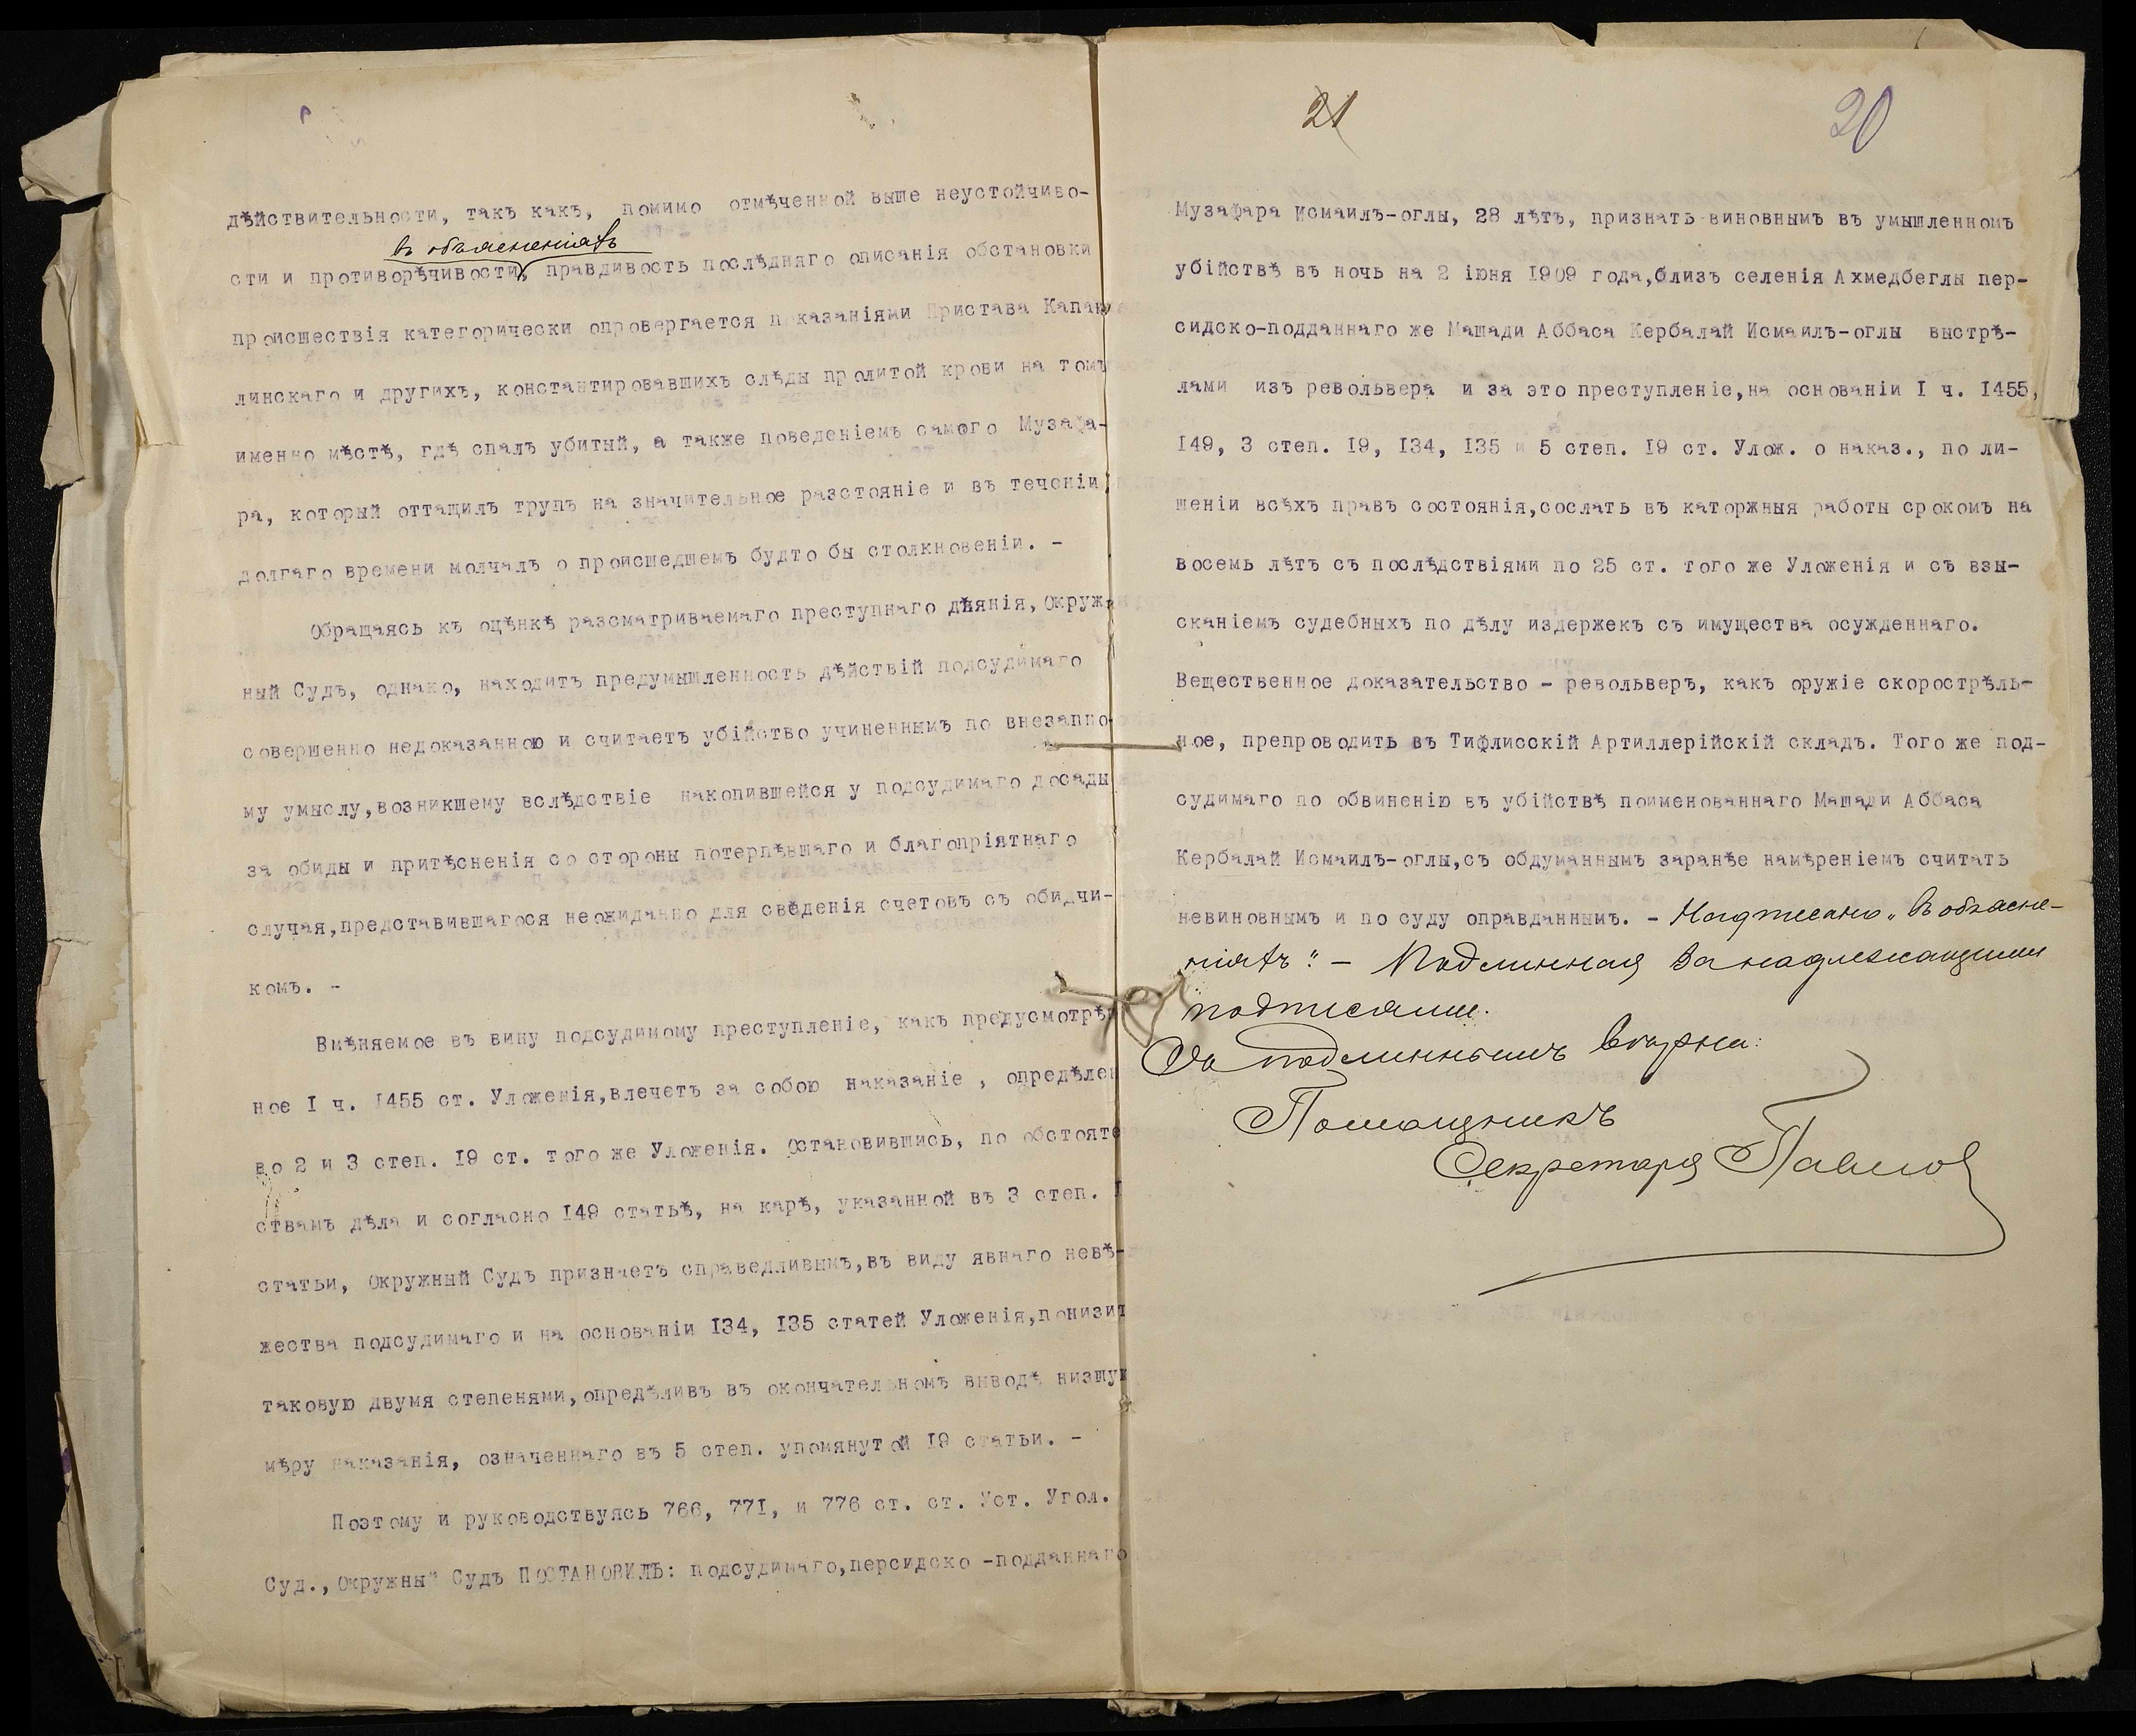 дѣйствительности, такъ какъ, помимо отмѣченной выше неустойчиво-
въ объясненіяхъ
сти и противорѣчивости, правдивость послѣдняго описанія обстановки
происшествія категорически опровергается показаніями Пристава Капан
линскаго и другихъ, константировавшихъ слѣды пролитой крови на томъ
именно мѣстѣ, гдѣ спалъ убитый, а также поведеніемъ самого Музафа-
ра, который оттащилъ трупъ на значительное разстояніе и въ теченіи
долгаго времени молчалъ о происшедшемъ будто бы столкновеніи. -
Обращаясь къ оцѣнкѣ разсматриваемаго преступнаго дѣянія, Окруж
ный Судъ, однако, находитъ предумышленность дѣйствій подсудимаго
совершенно недоказанною и считаетъ убійство учиненнымъ по внезапно
му умыслу,возникшему вслѣдствіе накопившейся у подсудимаго досады
за обиды и притѣсненія со стороны потерпѣвшаго и благопріятнаго
случая,представившагося неожиданно для сведенія счетовъ съ обидчи-
комъ. -
Вмѣняемое въ вину подсудимому преступленіе, какъ предусмотрѣн
ное I ч. I455 ст. Уложенія,влечетъ за собою наказаніе , опредѣлен
во 2 и 3 степ. I9 ст. того же Уложенія. Остановившись, по обстояте
ствамъ дѣла и согласно I49 статьѣ, на карѣ, указанной въ 3 степ. I
статьи, Окружный Судъ признаетъ справедливымъ,въ виду явнаго невѣ-
жества подсудимаго и на основаніи I34, I35 статей Уложенія,понизит
таковую двумя степенями,опредѣливъ въ окончательномъ выводѣ низшую
мѣру наказанія, означеннаго въ 5 степ. упомянутой I9 статьи. -
Поэтому и руководствуясь 766, 77I, и 776 ст. ст. Уст. Угол.
Суд.,Окружный Судъ ПОСТАНОВИЛЪ: подсудимаго,персидско -подданнаго
21
20
Музафара Исмаилъ-оглы, 28 лѣтъ, признать виновнымъ въ умышленномъ
убійствѣ въ ночь на 2 іюня I909 года,близъ селенія Ахмедбеглы пер-
сидско-подданнаго же Машади Аббаса Кербалай Исмаилъ-оглы выстрѣ-
лами изъ револьвера и за это преступленіе,на основаніи I ч. I455,
I49, 3 степ. I9, I34, I35 и 5 степ. I9 ст. Улож. о наказ., по ли-
шеніи всѣхъ правъ состоянія,сослать въ каторжныя работы срокомъ на
восемь лѣтъ съ послѣдствіями по 25 ст. того же Уложенія и съ взы-
сканіемъ судебныхъ по дѣлу издержекъ съ имущества осужденнаго.
Вещественное доказательство - револьверъ, какъ оружіе скорострѣль-
ное, препроводить въ Тифлисскій Артиллерійскій складъ. Того же под-
судимаго по обвиненію въ убійствѣ поименованнаго Машади Аббаса
Кербалай Исмаилъ-оглы,съ обдуманнымъ заранѣе намѣреніемъ считать
невиновнымъ и по суду оправданнымъ. - Надписано „въ объясне-
ніяхъ" - Подлинная за надлежащими
подписями.
Съ подлиннымъ вѣрно:
Помощникъ
Секретаря Павлов